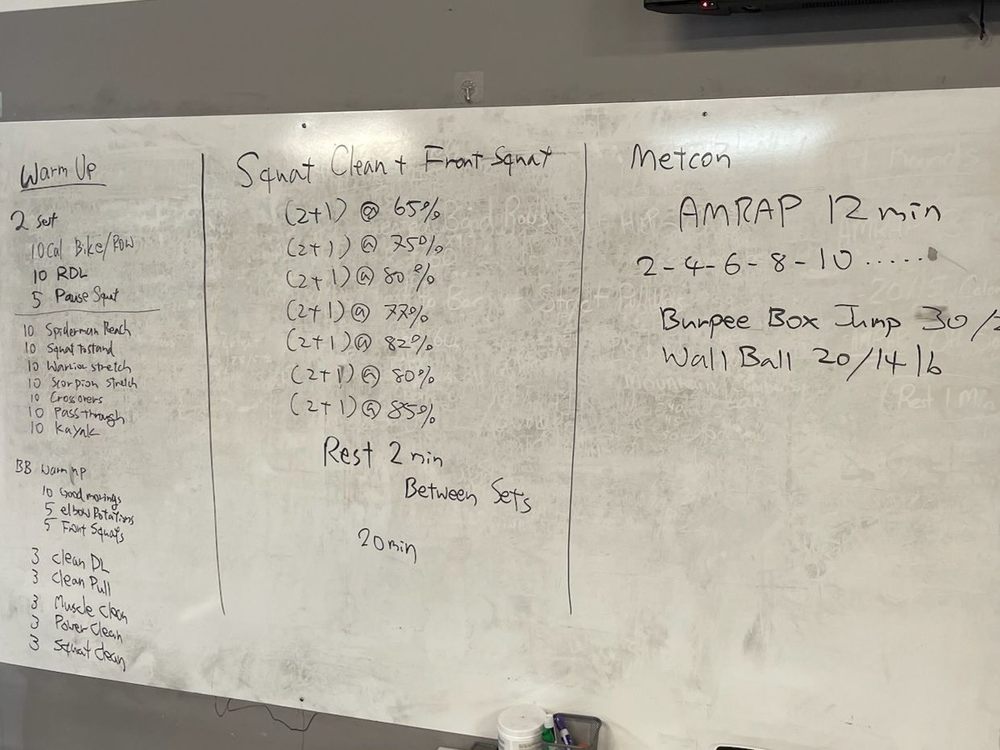 Warm Up
2 set
10 Cal Bike/Row
10 RDL
5 Pause Squt
10 Spiderman Reach
10 Squat to stand
10 Warrior stretch
10 Scorpion stretch
10 Crossovers
10 Pass through
10 Kayak
BB Warm up
10 Good mornings
5 elbow Rotations
5 Front Squats
3 Clean DL
3 Clean Pull
3 Muscle Clean
3 Power Clean
3 Squat Clean
Squat Clean + Front Squat
(2+1) @ 65%
(2+1) @ 75%
(2+1) @ 80%
(2+1) @ 77%
(2+1) @ 82%
(2+1) @ 80%
(2+1) @ 85%
Rest 2 min
Between Sets
20min
Metcon
AMRAP 12 min
2-4-6-8-10 ......
Burpee Box Jump 30/
Wall Ball 20/14 lb